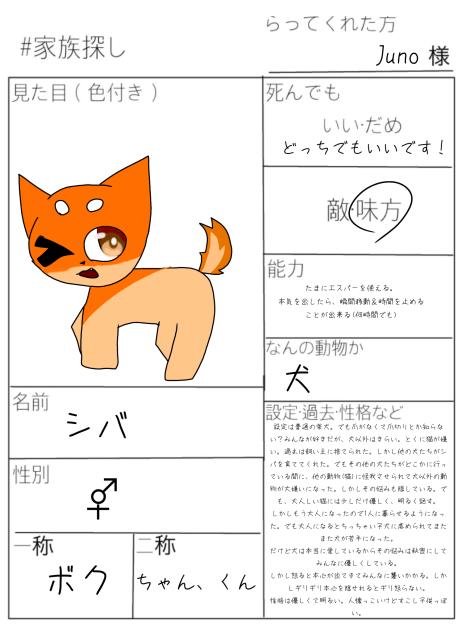 #家族探し
らってくれた方
Juno 様
見た目(色付き)
死んでも
いい・だめ
どっちでもいいです!
敵・味方
能力
たまにエスパーを使える。
本気を出したら、瞬間移動&時間を止める
ことが出来る(何時間でも)
なんの動物か
犬
名前
シバ
性別
⚥
一称
ボク
二称
ちゃん、くん
設定・過去・性格など
設定は普通の柴犬。でも爪がなくて爪切りとか知らな
い?みんなが好きだが、犬以外はきらい。とくに猫が嫌
い。過去は飼い主に捨てられた。しかし他の犬たちがシ
バを育ててくれた。でもその他の犬たちがどこかに行っ
ている間に、他の動物(猫)に怪我させられて犬以外の動
物が大嫌いになった。しかしその悩みも隠している。で
も、犬人しい猫には少しだけ優しく、明るく話す。
しかしもう大人になったので1人に暮らせるようになっ
た。でも大人になるとちっちゃい子犬に虐められてまた
また犬が苦手になった。
だけど犬は本当に愛しているからその悩みは秘密にして
みんなに優しくしている。
しかし怒ると本心が出てきてみんなに襲いかかる。しか
しギリギリ本心を隠せれるとギリ怒らない。
性格は優しくて明るい。人懐っこいけどすこし子供っぽ
い。